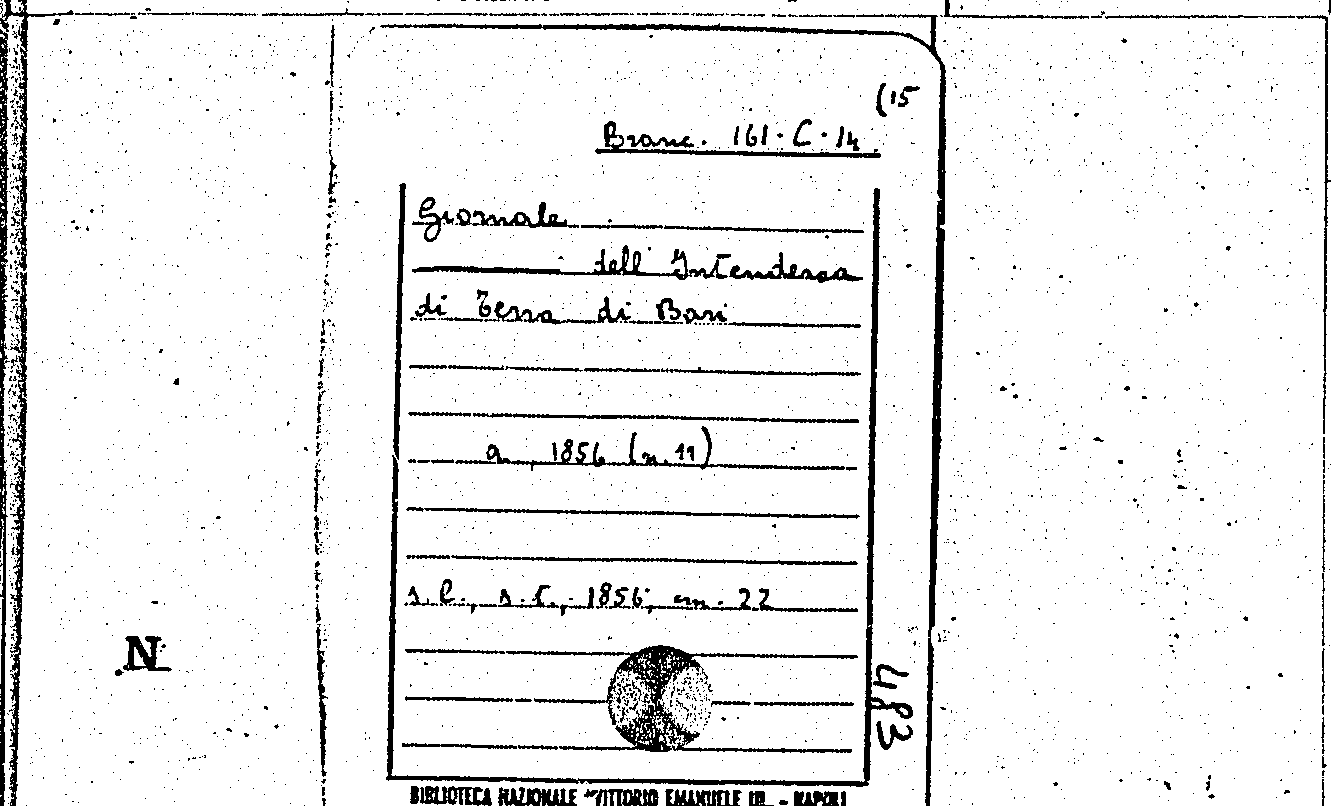 (15
Branc. 161·C·14
Giornale
dell'Intendenza
di Terra di Bari
a. 1856 (n. 11)
s.l., s.t., 1856, cm. 22
N
483
BIBLIOTECA NAZIONALE "VITTORIO EMANUELE III" - NAPOLI